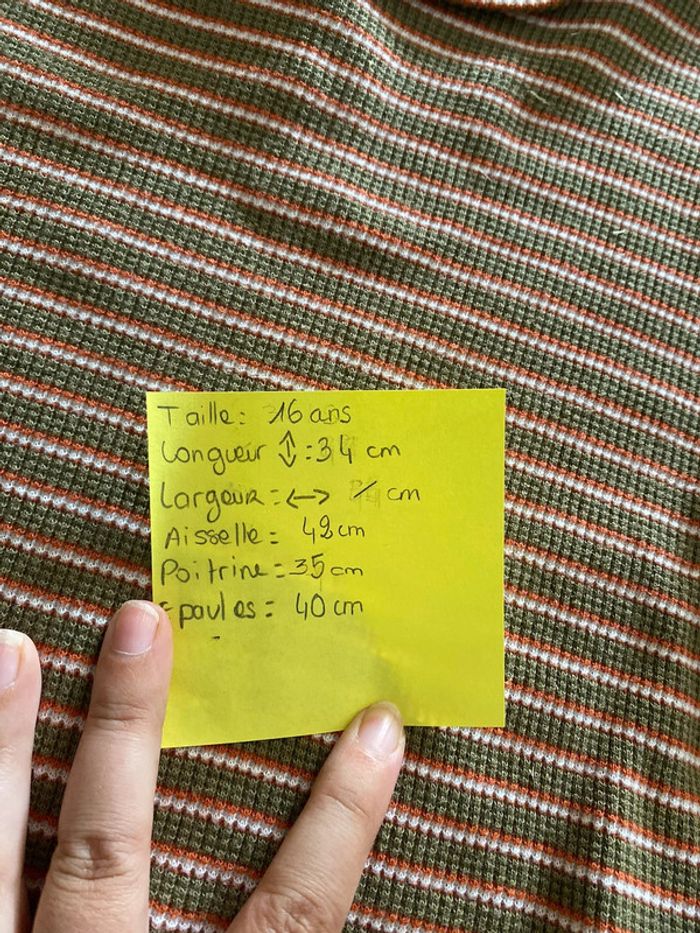 Taille: 16 ans
Longueur ↕:34 cm
Largeur=↔ / cm
Aisselle= 42cm
Poitrine=35cm
Epaules= 40cm